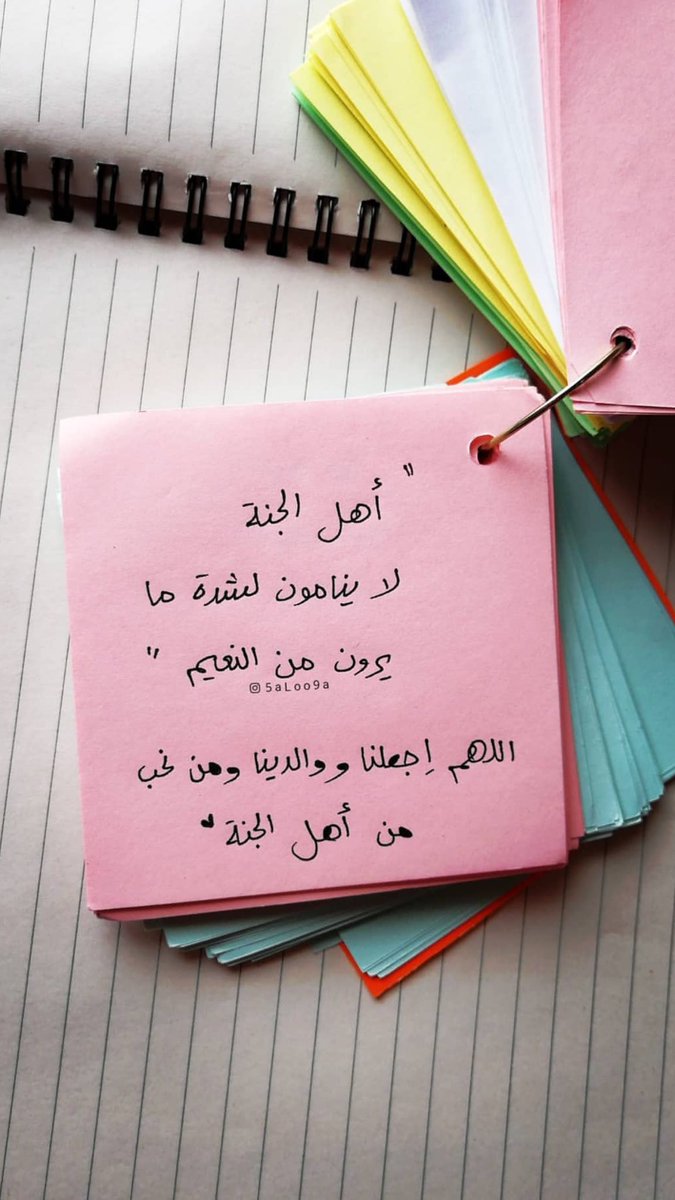 " أهل الجنة
لا ينامون لشدة ما
يرون من النعيم "
5aLoo9a
اللهم إجعلنا ووالدينا ومن نحب
من أهل الجنة ♥